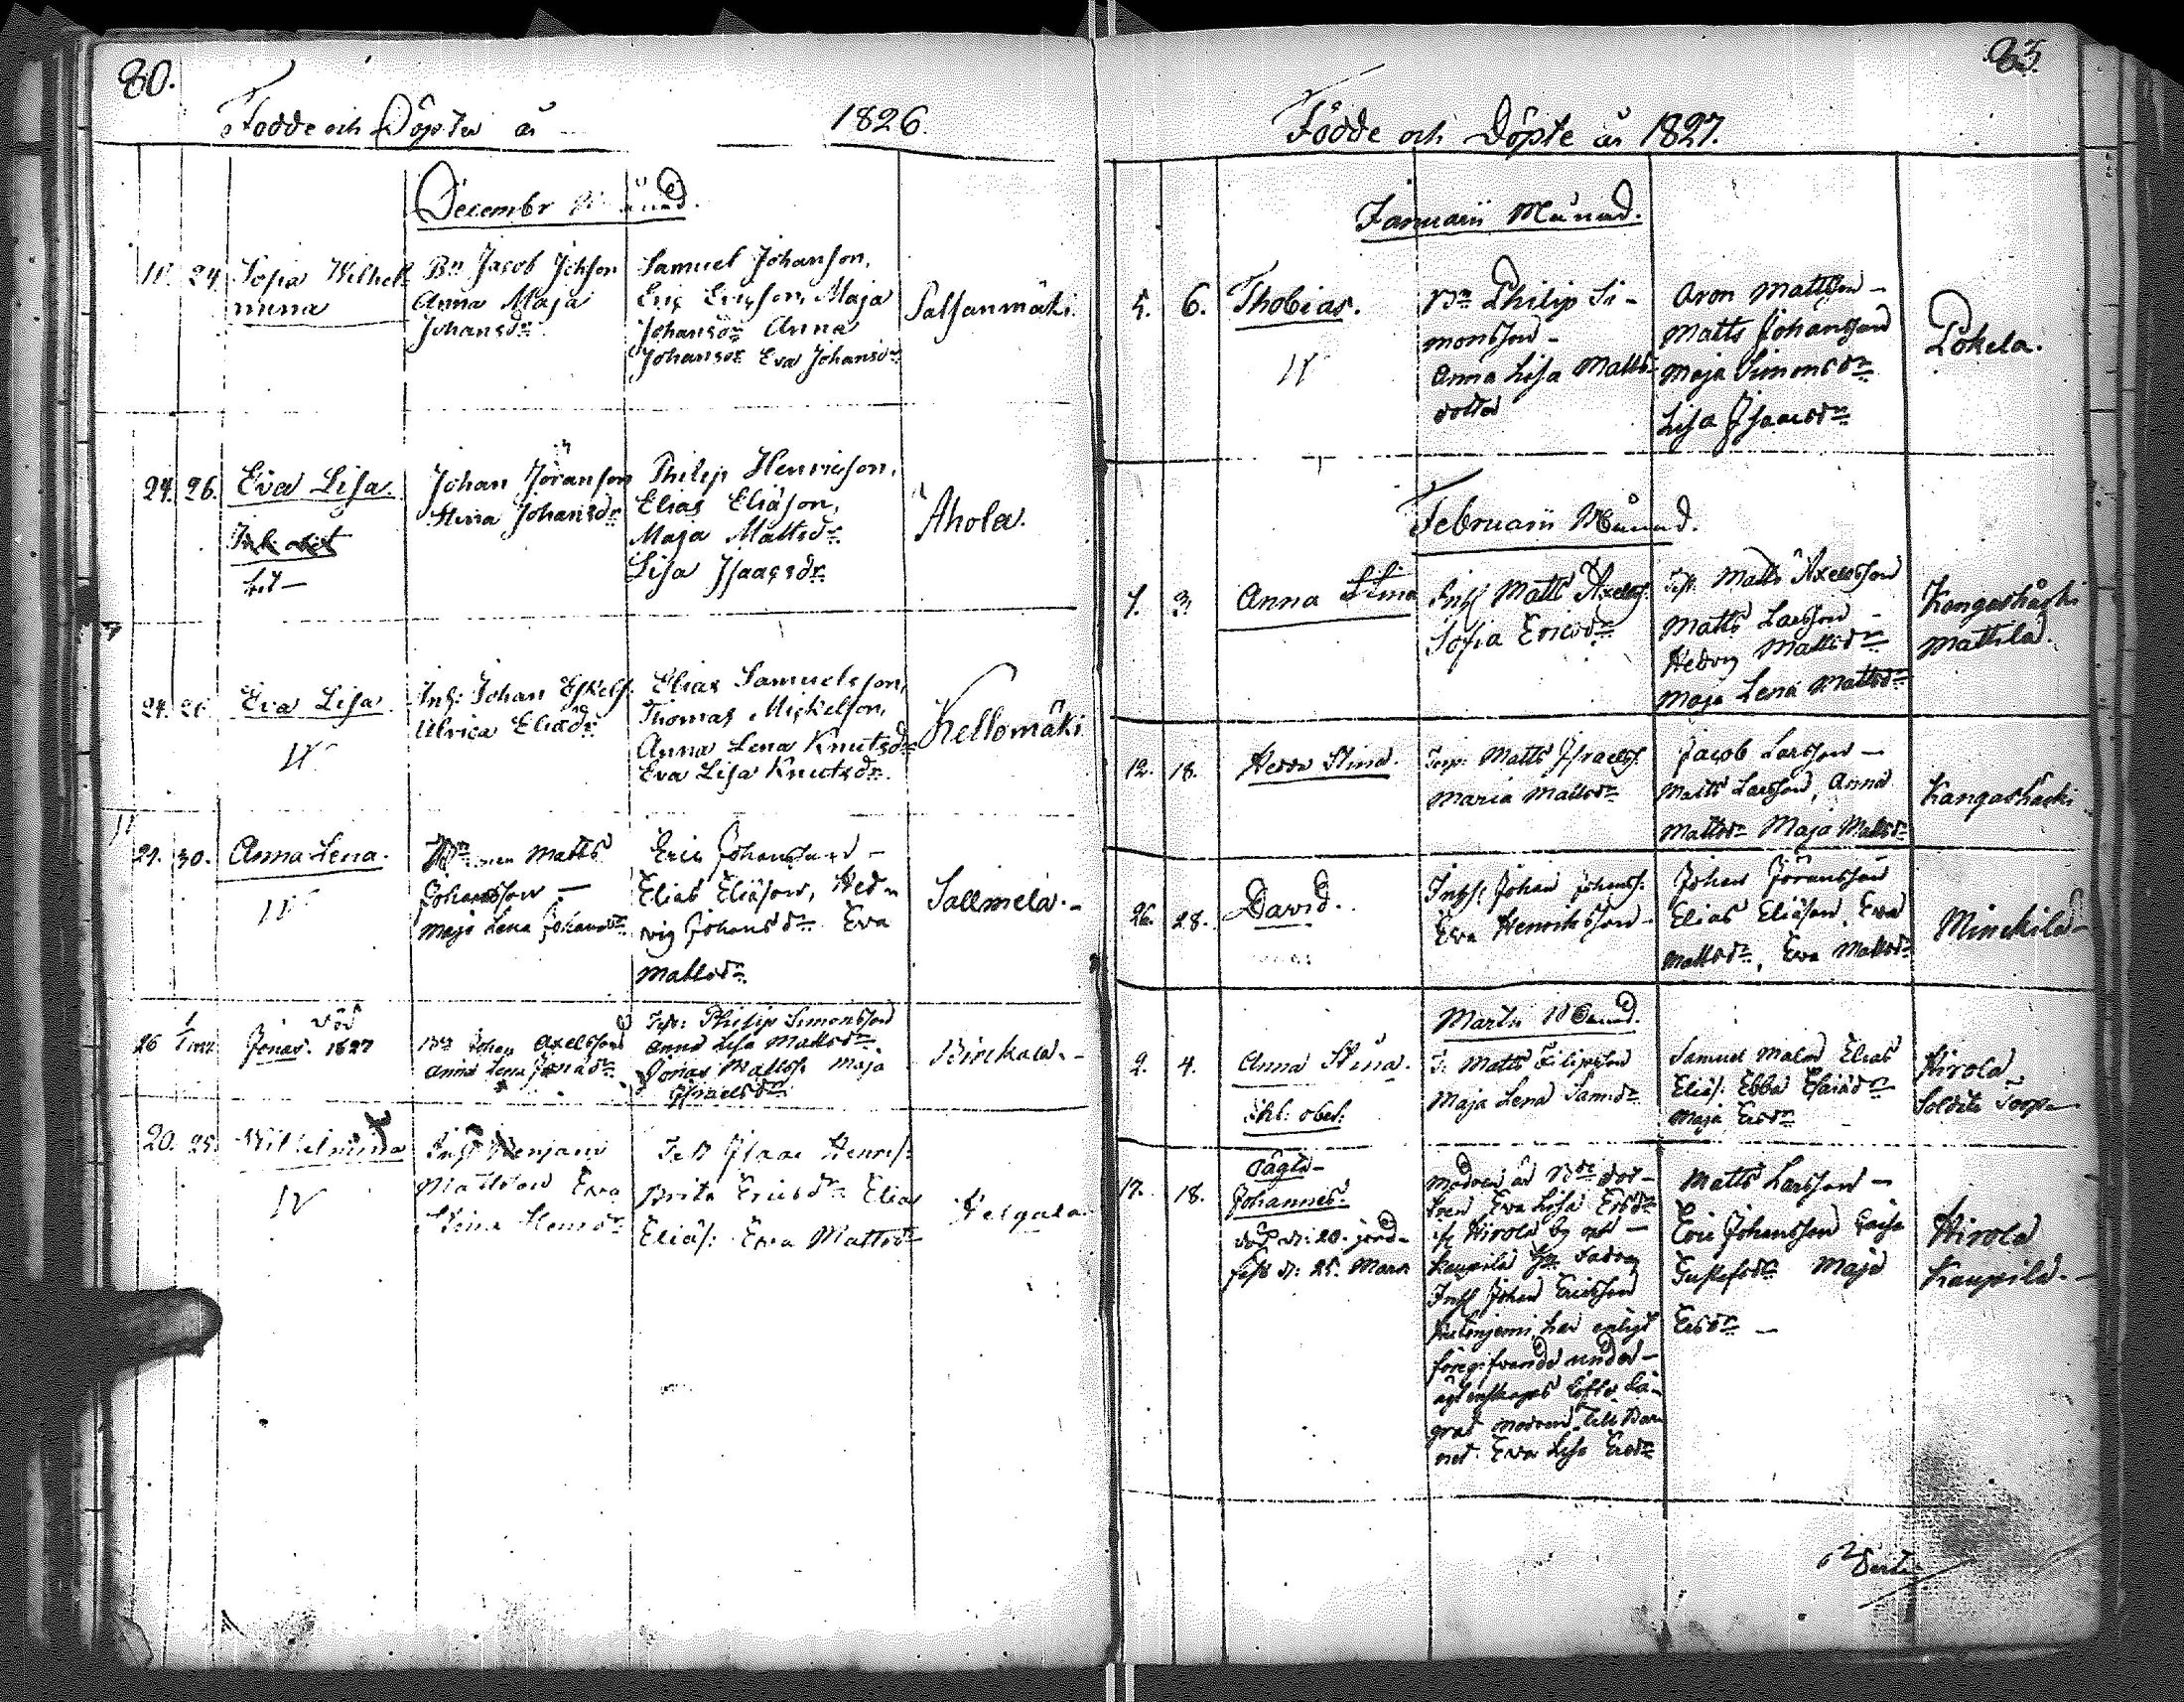 80.
Födde och Döpte år 1826.
Decembr Månad.
24. Sofia Wilhel-
mina
Bn Jacob Johson
Anna Maja
Johansdr
Samuel Johanson,
Eric Ericson, Maja
Johansdr Anna
Johansdr Eva Johansdr
24. 26. Eva Lisa.
Johan Jöranson
Stina Johansdr
Philip Henricson,
Elias Eliäson,
Maja Mattsdr
Lisa Isaacsdr
Ahola.
24. 26. Eva Lisa.
Inh: Johan
Ulrica Eliädr
Elias Samuelsson,
Thomas Mickelson,
Anna Lena Knutsdr
Eva Lisa Knutsdr.
Kellomäki
30. Anna Lena.
Matts
Johansson —
Maja Lena Johansdr
Eric Johansson —
Elias Eliäson, Hed-
vig Johansdr Eva
Mattsdr
Sallmela. -
26 Jonas. 1827
Bn Johan Axelsson
Anna Lena Jonädr
Philip Simonsson
Anna Lisa Mattsdr
Jonas Mattss. Maja
Israelsdr
20. 25. Wilhelmina
Benjam
Mattsson Eva
Stina Henrdr
Isaac Henrs.
Brita Ericsdr Elias
Eliäs. Eva Mattsdr
83.
Födde och Döpte år 1827.
Januarii Månad.
5. 6. Thobias.
Bn Philip Si-
monsson -
Anna Lisa Matts-
dotter
Aron Mattsson -
Matts Johansson
Maja Simonsdr
Lisa Isaacsdr
Pokela.
Februarii Månad.
3. Anna Stina
Inhs Matts Axelss.
Sofia Ericsdr
Matts Axelsson
Matts Larsson -
Hedvig Mattsdr
Maja Lena Mattsdr
Kangashacki
Mattila.
12. 18. Hedda Stina.
Matts Israelss.
Maria Mattsdr
Jacob Larsson —
Matts Larsson, Anna
Mattsdr Maja Mattsdr
Kangashacki
26. 28. David.
Inhs. Johan Johanss.
Eva Henriksson -
Johan Jöransson
Elias Eliäson, Eva
Mattsdr, Eva Mattsdr
Minckila -
Martii Månad.
2. 4. Anna Stina.
Matts Filipsson
Maja Lena Samsdr
Samuel Elias
Eliäs. Ebba Esaiädr
Maja Ersdr
Hirola
Soldits Torp -
17. 18. Oägta -
Johannes.
död d: 20. jord-
fäst d: 25. Mars
Modren är Bde dot-
tren Eva Lisa Ersdr
Hirola by och —
Kaupila
Inhs Johan Ericsson
har enligt
föregifvande under -
ägtenskapes löfte lä-
grat modren till Bar-
net Eva Lisa Ersdr
Matts Larsson —
Eric Johansson Caisa
Gustafsdr Maja
Ersdr —
Hirola
Kaupila. -